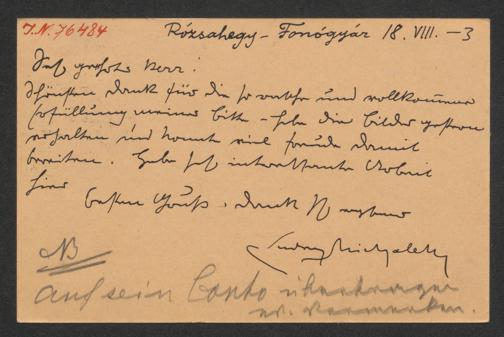 I.N. 76484
Rózsahegy – Fonógyár 18. VIII. –3
Sehr geehrter Herr!
Schönsten Dank für die so rasche und vollkommene
Erfüllung meiner Bitte – habe die Bilder gestern
erhalten und Freude damit
bereiten. Habe sehr interessante Arbeit
hier
besten Gruß, Dank Ihr ergebener
Ludwig Michalek
NB
auf sein Conto übertragen
ev. vermerken.